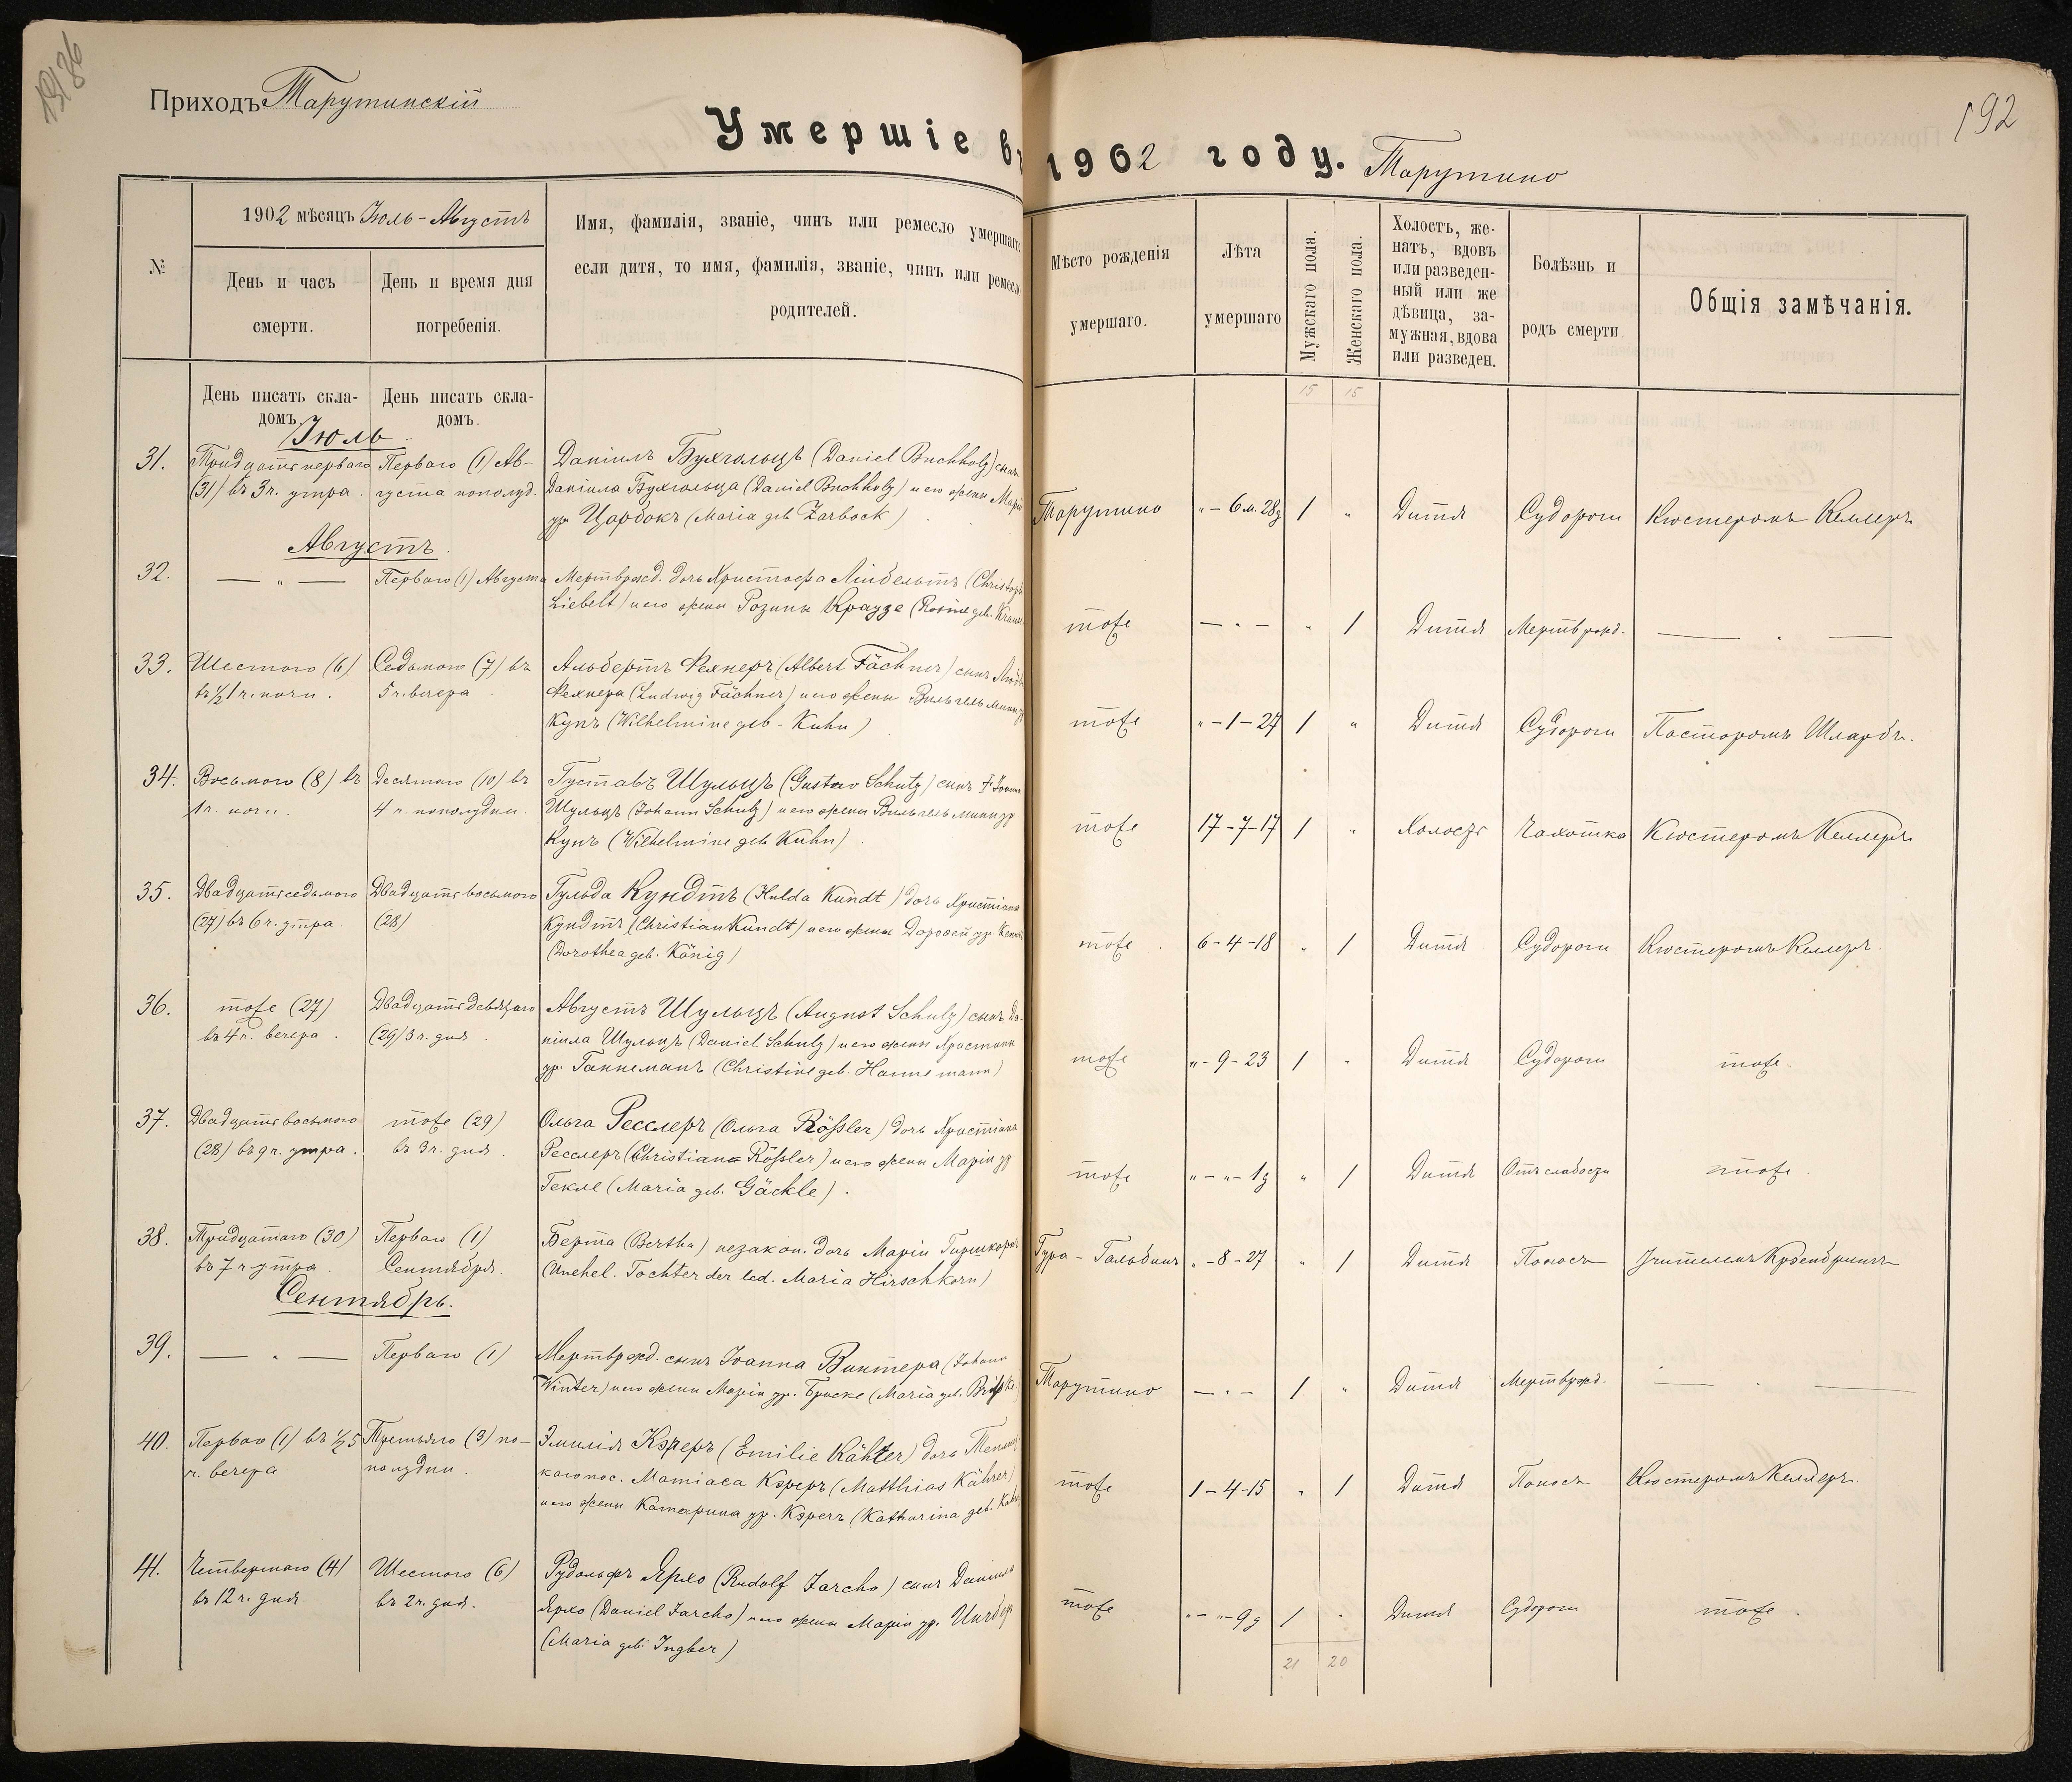 192
Приходъ Тарутинскій
Умершіе въ 1902 году. Тарутино
№
1902 мѣсяцъ Іюль-Августъ
День и часъ
смерти.
День и время дня
погребенія.
Имя, фамилія, званіе, чинъ или ремесло умершаго;
если дитя, то имя, фамилія, званіе, чинъ или ремесло
родителей.
Мѣсто рожденія
умершаго.
Лѣта
умершаго
Мужскаго пола.
Женскаго пола.
Холостъ, же-
натъ, вдовъ
или разведен-
ный или же
дѣвица, за-
мужная, вдова
или разведен.
Болѣзнь и
родъ смерти.
Общія замѣчанія.
15 15
День писать скла-
домъ.
День писать скла-
домъ.
Іюль
31. Тридцатьперваго Перваго (1) Ав- Даніилъ Бухгольцъ (Daniel Buchholz) сынъ
(31) въ 3 ч. утра. густа пополуд. Даніила Бухгольца (Daniel Buchholz) и его жены Маріи
ур. Царбокъ (Maria geb. Zarbock)
Тарутино „ – 6 м. 28 д 1 „ Дитя Судороги Кюстеромъ Келлеръ
Августъ.
32. — „ — Перваго (1) Августа Мертворожд. дочь Христофа Либельтъ (Christoph
Liebelt) и его жены Розины Краузе (Rosine geb. Krause
тоже — „ — „ 1 Дитя Мертворожд. — „ —
33. Шестого (6) Седьмого (7) въ Альбертъ Фехнеръ (Albert Fächner) сынъ Людв
въ ½ 1 ч. ночи. 5 ч. вечера. Фехнера (Ludwig Fächner) и его жены Вильгельмины ур
Кунъ (Wilhelmine geb. Kuhn)
тоже „ – 1 – 27 1 „ Дитя Судороги Пасторомъ Шларбъ.
34. Восьмого (8) въ Десятаго (10) въ Густавъ Шульцъ (Gustav Schulz) сынъ † Іоанна
1 ч. ночи. 4 ч. пополудни. Шульцъ (Johann Schulz) и его жены Вильгельмины ур.
Кунъ (Wilhelmine geb. Kuhn).
тоже 17 – 7 – 17 1 „ Холостъ Чахотка Кюстеромъ Келлеръ
35. Двадцатьседьмого Двадцатьвосьмого Гульда Кундтъ (Hulda Kundt) дочь Христіана
(27) въ 6 ч. утра. (28) Кундтъ (Christian Kundt) и его жены Доротеи ур. Кениг
(Dorothea geb. König)
тоже 6 – 4 – 18 „ 1 Дитя Судороги Кюстеромъ Келлеръ.
36. тоже (27) Двадцатьдевятаго Августъ Шульцъ (August Schulz) сынъ Да-
въ 4 ч. вечера. (29) 3 ч. дня. ніила Шульцъ (Daniel Schulz) и его жены Христины
ур. Ганнеманъ (Christine geb. Hannemann)
тоже „ – 9 – 23 1 „ Дитя Судороги тоже.
37. Двадцатьвосьмого тоже (29) Ольга Ресслеръ (Ольга Rößler) дочь Христіана
(28) въ 9 ч. утра. въ 3 ч. дня. Ресслеръ (Christian Rößler) и его жены Маріи ур.
Гекле (Maria geb. Gäckle).
тоже „ – „ – 1 д „ 1 Дитя Отъ слабости тоже.
38. Тридцатаго (30) Перваго (1) Берта (Bertha) незакон. дочь Маріи Гиршкорнъ
въ 7 ч. утра. Сентября. (Unehel. Tochter der led. Maria Hirschkorn)
Гура – Гальбинъ „ – 8 – 27 „ 1 Дитя Поносъ Учителемъ
Сентябрь.
39. — „ — Перваго (1) Мертворожд. сынъ Іоанна Винтера (Johann
Winter) и его жены Маріи ур. Бриске (Maria geb.
Тарутино — „ — 1 „ Дитя Мертворожд. — „ —
40. Перваго (1) въ ½ 5 Третьяго (3) по- Эмилія Кэреръ (Emilie Kährer) дочь
ч. вечера полудни. каго пос. Матіаса Кэреръ (Matthias Kährer)
и его жены Катарина ур. Кэреръ (Katharina geb.
тоже 1 – 4 – 15 „ 1 Дитя Поносъ Кюстеромъ Келлеръ.
41. Четвертаго (4) Шестого (6) Рудольфъ Ярхо (Rudolf Jarcho) сынъ Даніила
въ 12 ч. дня въ 2 ч. дня. Ярхо (Daniel Jarcho) и его жены Маріи ур. Ингбер
(Maria geb. Ingber)
тоже „ – „ – 9 д 1 „ Дитя Судороги тоже.
21 20